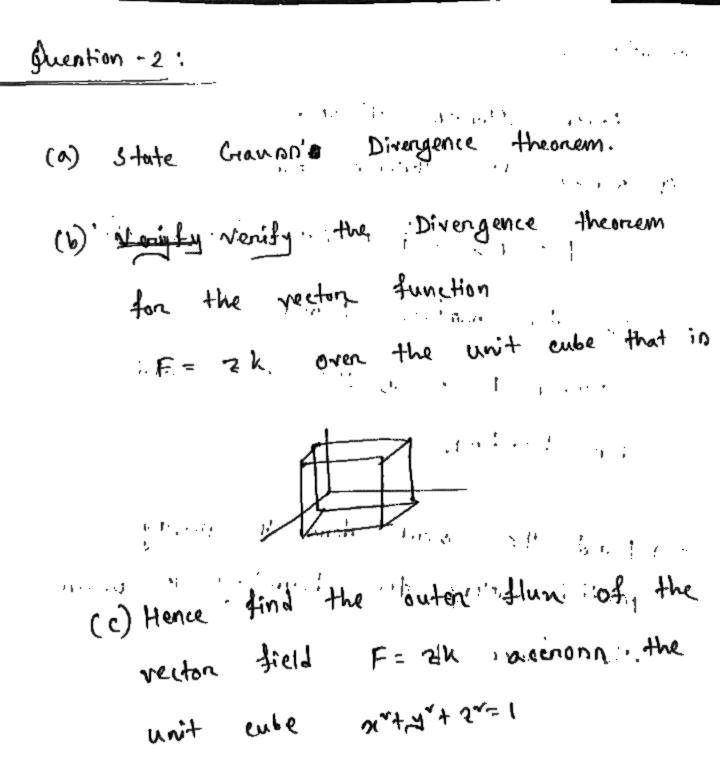 Question - 2 :
(a) State Gauss's Divergence theorem.
(b) verify the Divergence theorem
for the vector function
F = zk. over the unit cube that is
(c) Hence find the outer flux of, the
vector field F = zk accross the
unit cube x²+y²+z²=1